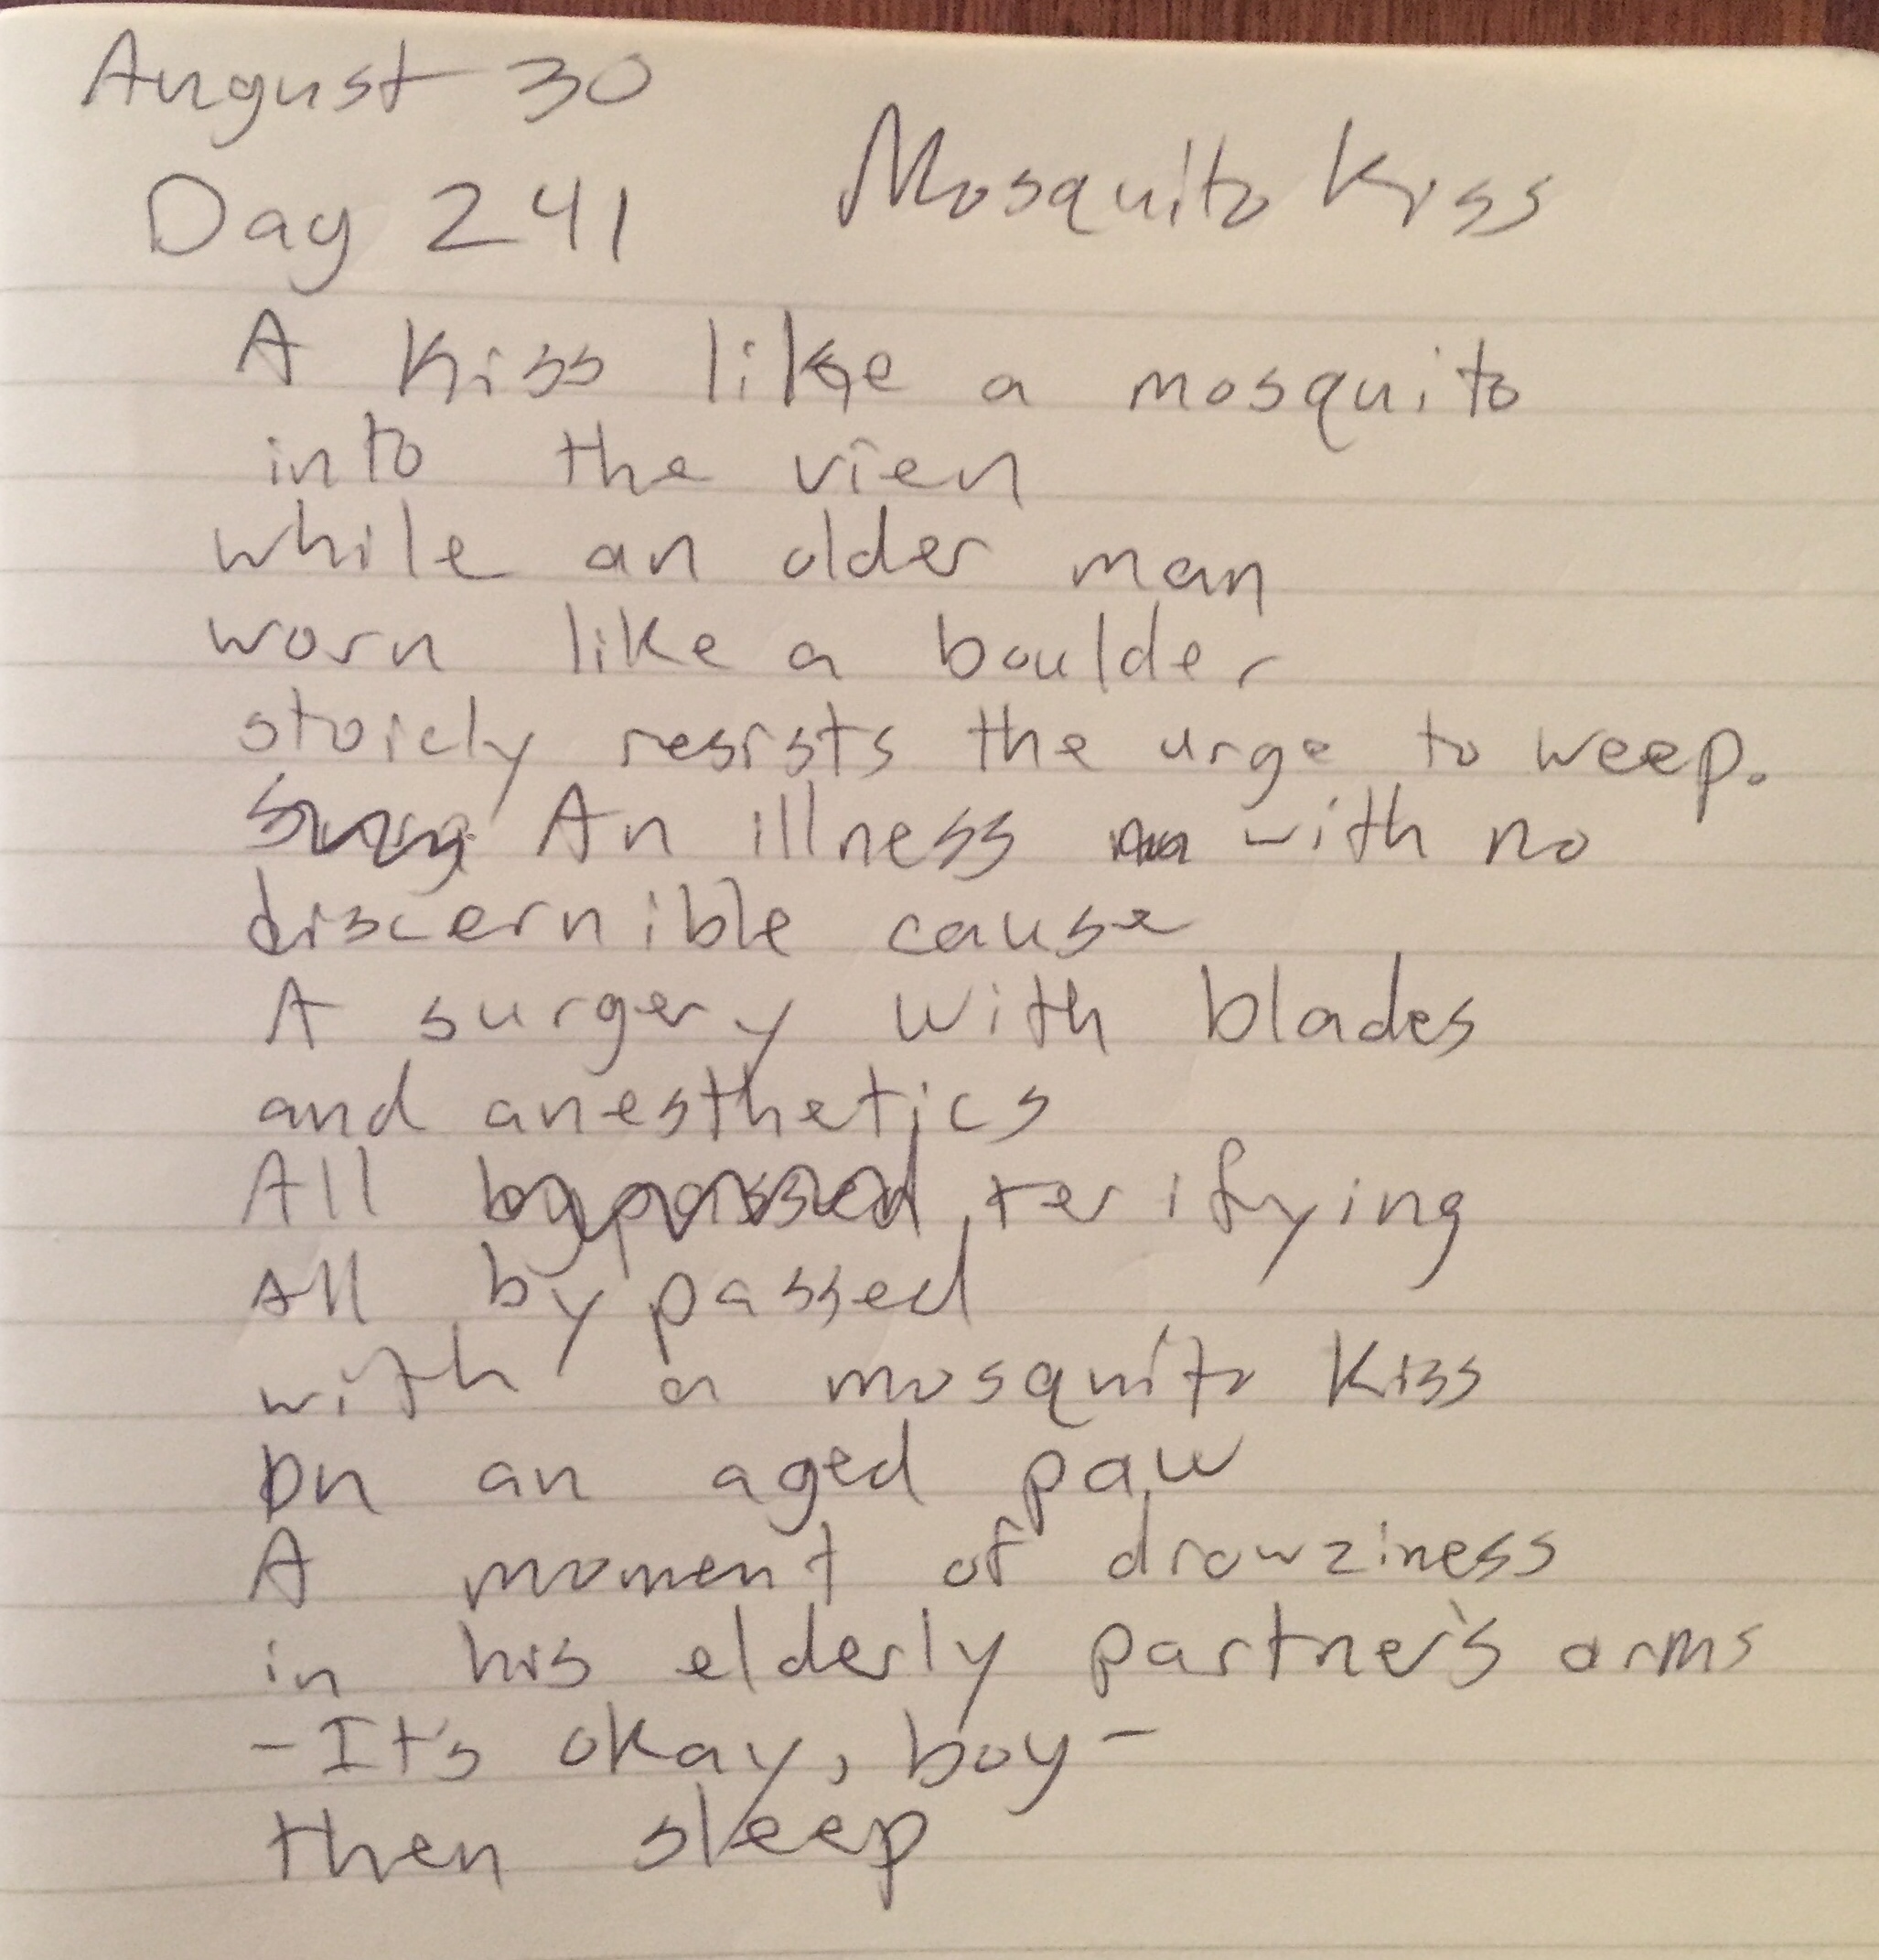 August 30
Day 241
Mosquito Kiss
A kiss like a mosquito
into the vien
while an older man
worn like a boulder
stoicly resists the urge to weep.
An illness with no
discernible cause
A surgery with blades
and anesthetics
All bypassed terifying
All bypassed
with a mosquito kiss
On an aged paw
A moment of drowziness
in his elderly partner's arms
-It's okay, boy-
then sleep